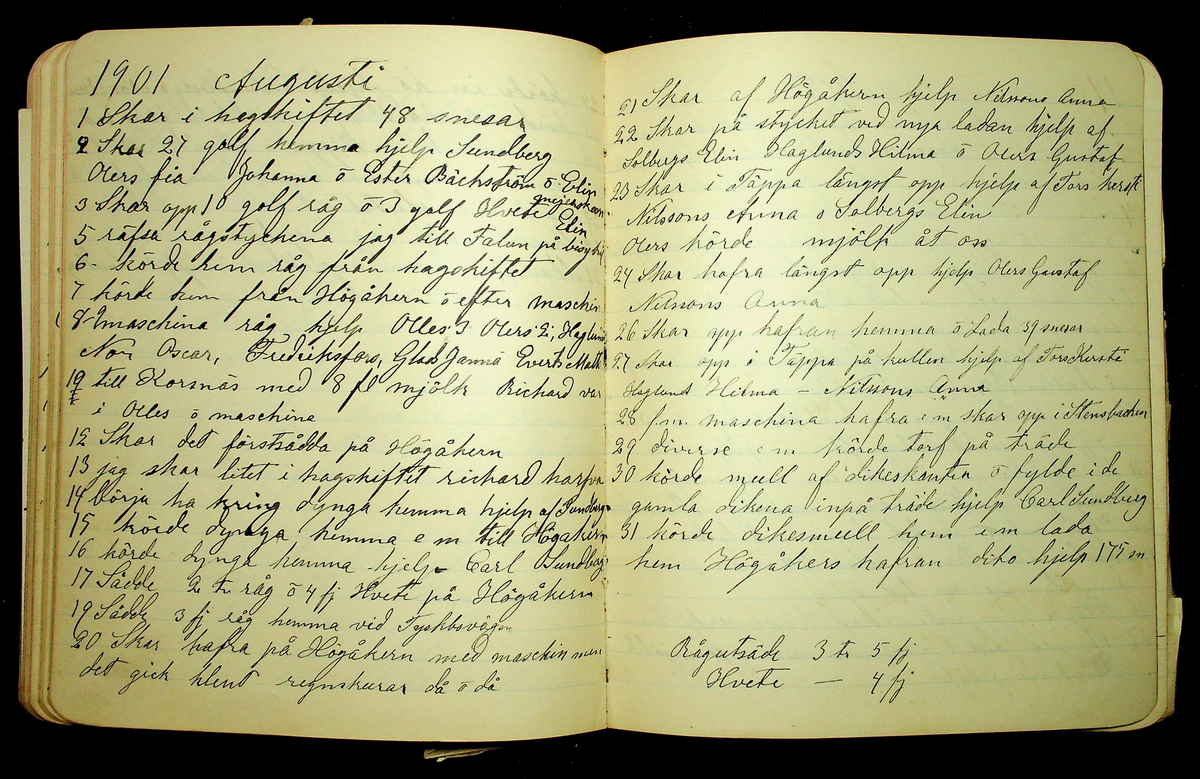 1901 Augusti
1 Skar i hagskiftet 48 snesar
2 Skar 27 golf hemma hjelp Sundberg
Olers fia Johanna o Ester Bäckström o Elin
3 Skar opp 10 golf råg o 3 golf Hvete Elin
5 räfsa rågstyckena jag till Falun på
6 - körde hem råg från hagskiftet
7 körde hem från Högåkern o efter maschin
8 maschina råg hjelp Olles 3 Olers 2, Haglund
Nor Oscar, Fredriksfors, Glas Janna Everts Matts
till Kornäs med 8 fl mjölk Richard var
i Olles o maschina
12 Skar det förstsådda på Högåkern
13 jag skar litet i hagskiftet richard harfva
14 börja ha kring dynga hemma hjelp af Sundberg
15 körde dynga hemma e m till Högåkern
16 körde dynga hemma hjelp - Carl Sundberg
17 Sådde 2 tr råg o 4 fj Hvete på Högåkern
19 Sådde 3 fj råg hemma vid Tyskbovägen
20 Skar hafra på Högåkern med maschin men
det gick klent regnskurar då o då
21 Skar af Högåkern hjelp Nilssons Anna
22 Skar på stycket ved nya ladan hjelp af
Solbergs Elin Haglunds Hilma o Olers Gustaf
23 Skar i Täppa längst opp hjelp af Fors Kersti
Nilssons Anna o Solbergs Elin
Olers körde mjölk åt oss
24 Skar hafra längst opp hjelp Olers Gustaf
Nilssons Anna
26 Skar opp hafran hemma o Lada 39 snesar
27 Skar opp i Täppa på kullen hjelp af Fors Kersti
Haglund Hilma - Nilssons Anna
28 f.m. maschina hafra e m skar opp i Stensbacken
29 diverse e m körde torf på träde
30 körde mull af dikeskanten o fylde i de
gamla dikena inpå träde hjelp Carl Sundberg
31 körde dikesmull hem e m lada
hem Högåkers hafran dito hjelp 175 sn
Rågutsäde 3 tr 5 fj
Hvete — 4 fj